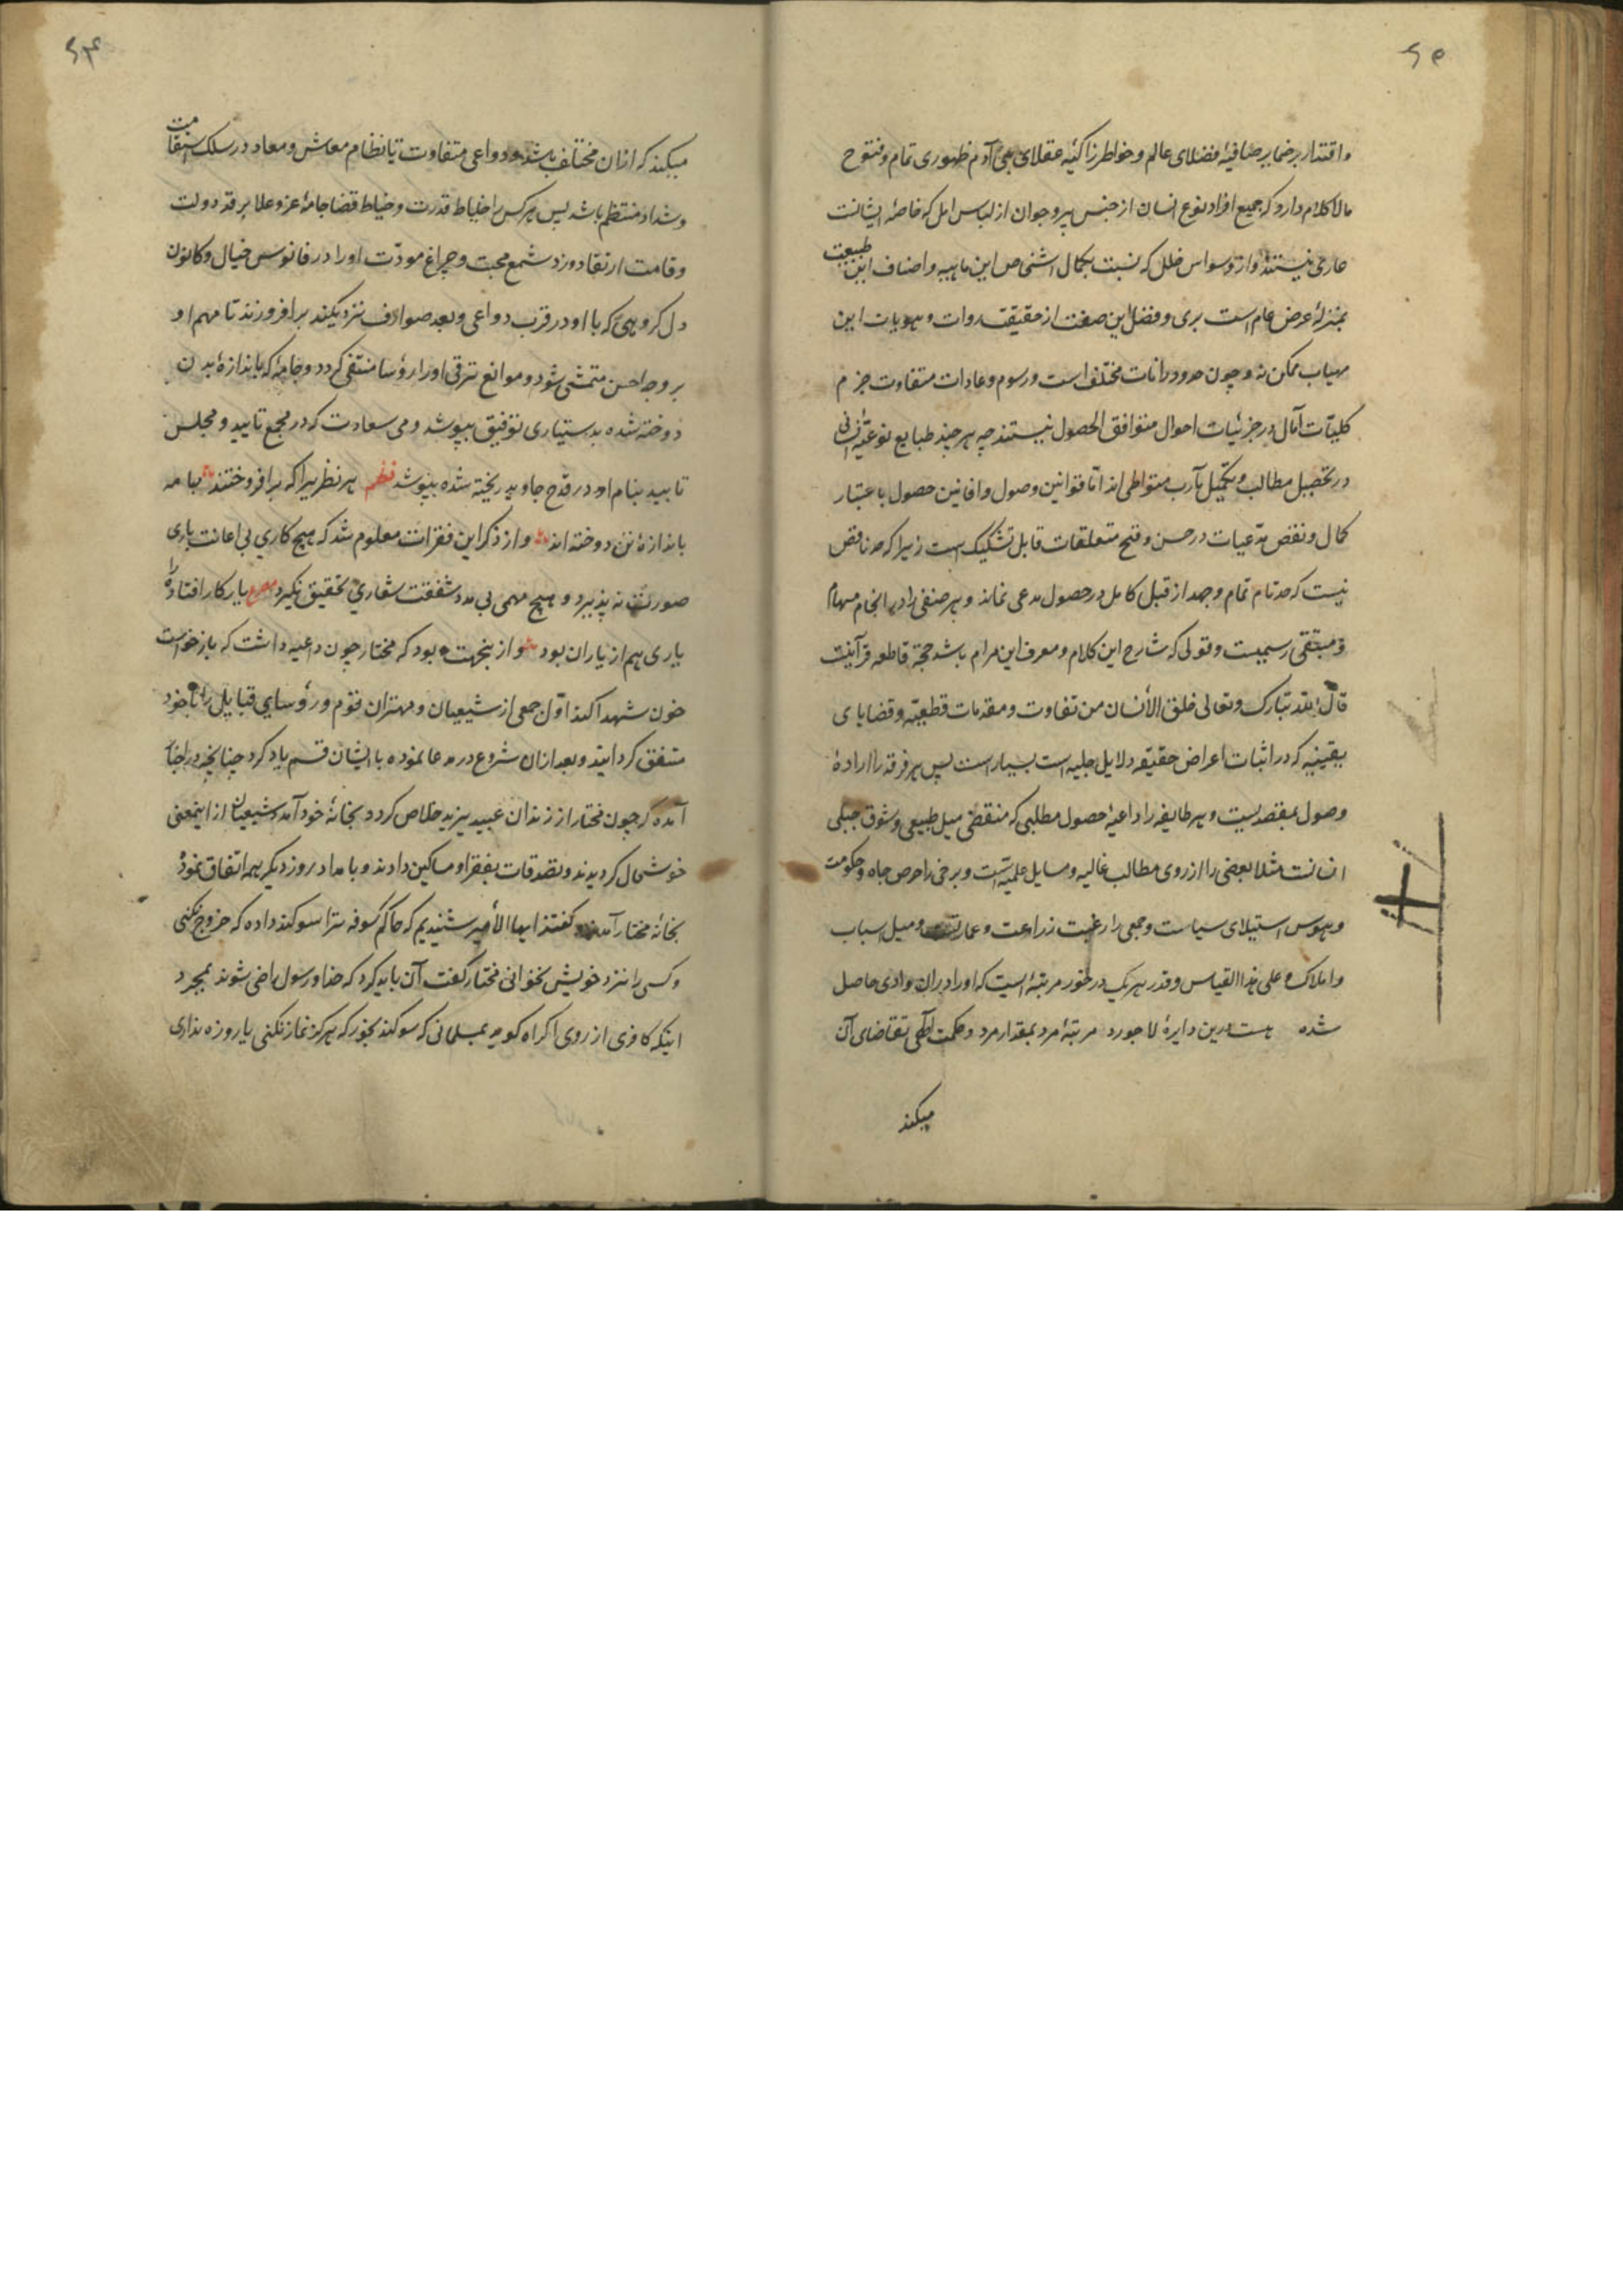 ۶۵
و اقتدار بر ضمایر صافیهٔ فضلای عالم و خواطر زاکیهٔ عقلای بنی آدم ظهوری تمام و فتوح
مالاکلام دارد که جمیع افراد نوع انسان از جنس پیر و جوان از لباس امل که خاصهٔ ایشانست
عاری نیستند و از وسواس خلل که نسبت بکمال اشخاص این ماهیه و اصناف این طبیعت
بمنزلهٔ عرض عام است بری و فصل این صفت از حقیقت ذوات و هویات این
مهیات ممکن نه و چون حدود رانات مختلف است و رسوم و عادات متفاوت جزم
کلیّات آمال در جزئیات احوال متوافق الحصول نیستند چه هر چند طبایع نوعیّه انسانی
در تحصیل مطالب و تکمیل مآرب متواطی اند امّا قوانین وصول و افانین حصول باعتبار
کمال و نقص مدّعیات در حسن و قبح متعلقات قابل تشکیک است زیرا که حد ناقص
نیست که حد تام تمام و جهد از قبل کامل در حصول مدعی نماند و هر صنفی را در انجام مهام
رسمیست و قولی که شارح این کلام و معرف این مرام باشد حجة قاطعه قرآنیت
قال الله تبارک و تعالی خلق الأنسان من تفاوت و مقدمات قطعیّه و قضایای
یقینیه که در اثبات اعراض حقیقه دلایل جلیه است بسیار است پس هر فرقه را ارادهٔ
وصول بمقصدیست و هر طایفه را داعیهٔ حصول مطلبی که منقضی میل طبیعی و شوق جبلی
انسانست مثلا بعضی را از روی مطالب غالیه و مسایل علمیّه است و برخی را حرص جاه و حکومت
و هوس استیلای سیاست و جمعی را رغبت زراعت و عمارت و میل اسباب
و املاک و علی هذا القیاس و قدر هر یک در خور مرتبهٔ ایست که او را در ان وادی حاصل
شده هست درین دایرهٔ لاجورد مرتبهٔ مرد بمقدار مرد و حکمت الهی تقاضای آن
میکند
۶۴
میکند که از ان مختلف باشد و دواعی متفاوت تا نظام معاش و معاد در سلک استقامت
و شداد منتظم باشد پس هر کس را خیاط قدرت و خیاط قضا جامهٔ عز و علا بر قد دولت
و قامت ارتقا دوزد شمع محبت و چراغ مودّت او را در فانوس خیال و کانون
دل گروهی که با او در قرب دواعی و بعد صوارف نزدیکند برافروزند تا مهم او
بر وجه احسن متمشی شود و موانع ترقی او را رؤسا منتفی گردد و جامهٔ که باندازهٔ بدن
دوخته شده بدستیاری توفیق بپوشد و می سعادت که در مجمع تایید و مجلس
تابید بنام او در قدح جاوید ریخته شده بنوشد نظم هر نظری را که برافروختند جامه
باندازهٔ تن دوخته اند و از ذکر این فقرات معلوم شد که هیچ کاری بی اعانت یاری
صورت نه پذیرد و هیچ مهمی بی مدد شفقت شعاری تحقیق نگیرد مصرع یار کار افتاده را
یاری هم از یاران بود و از ینجهت بود که مختار چون داعیه داشت که بازخواست
خون شهدا کند اوّل جمعی از شیعیان و مهتران قوم و رؤسای قبایل را با خود
متفق گردانید و بعد از ان شروع در مدعا نموده با ایشان قسم یاد کرد چنانچه در اخبار
آمده که چون مختار از زندان عبید یزید خلاص کرد و بخانهٔ خود آمد و شیعیان از اینمعنی
خوشحال گردیدند و تصدقات بفقرا و مساکین دادند و بامداد روز دیگر همه اتّفاق نمود
بخانهٔ مختار آمدند و گفتند ایها الأمیر شنیدیم که حاکم کوفه ترا سوگند داده که خروج نکنی
و کسی را نزد خویش نخوانی مختار گفت آن باید کرد که خدا و رسول راضی شوند بمجرد
اینکه کافری از روی اکراه گوید بمسلمانی که سوگند بخور که هرگز نماز نکنی یا روزه نداری